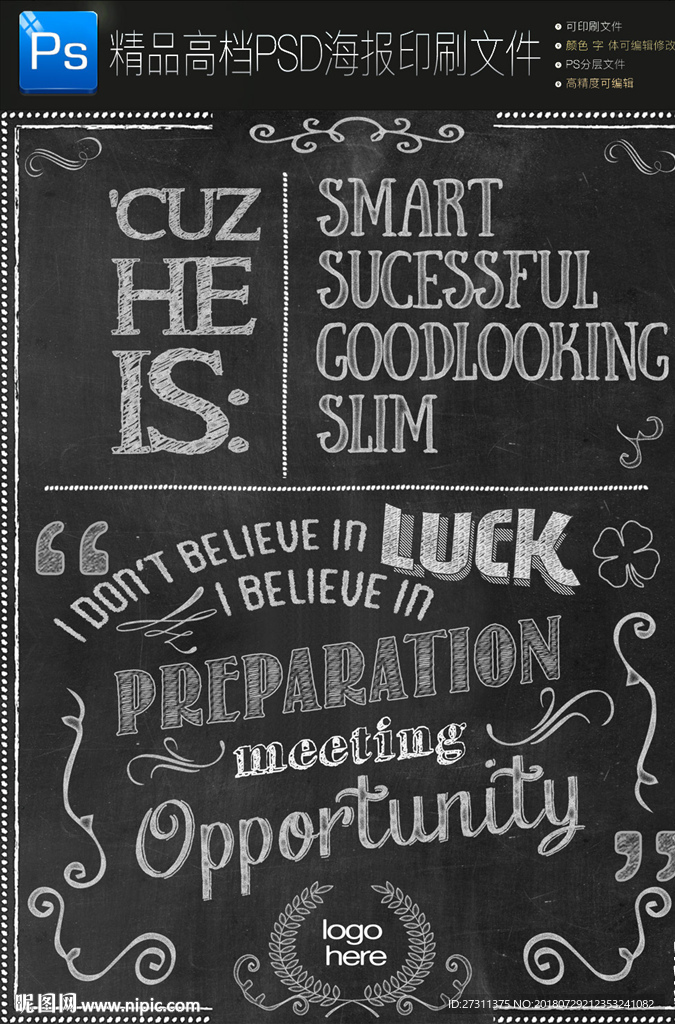 Ps
精品高档PSD海报印刷文件
可印刷文件
颜色 字 体可编辑修改
PS分层文件
高精度可编辑
'CUZ
HE
IS:
SMART
SUCESSFUL
GOODLOOKING
SLIM
“
I DON'T BELIEVE in LUCK
I BELIEVE in
PREPARATION
meeting
Opportunity
”
logo
here
昵图网 www.nipic.com
ID:27311375 NO:20180729212353241082